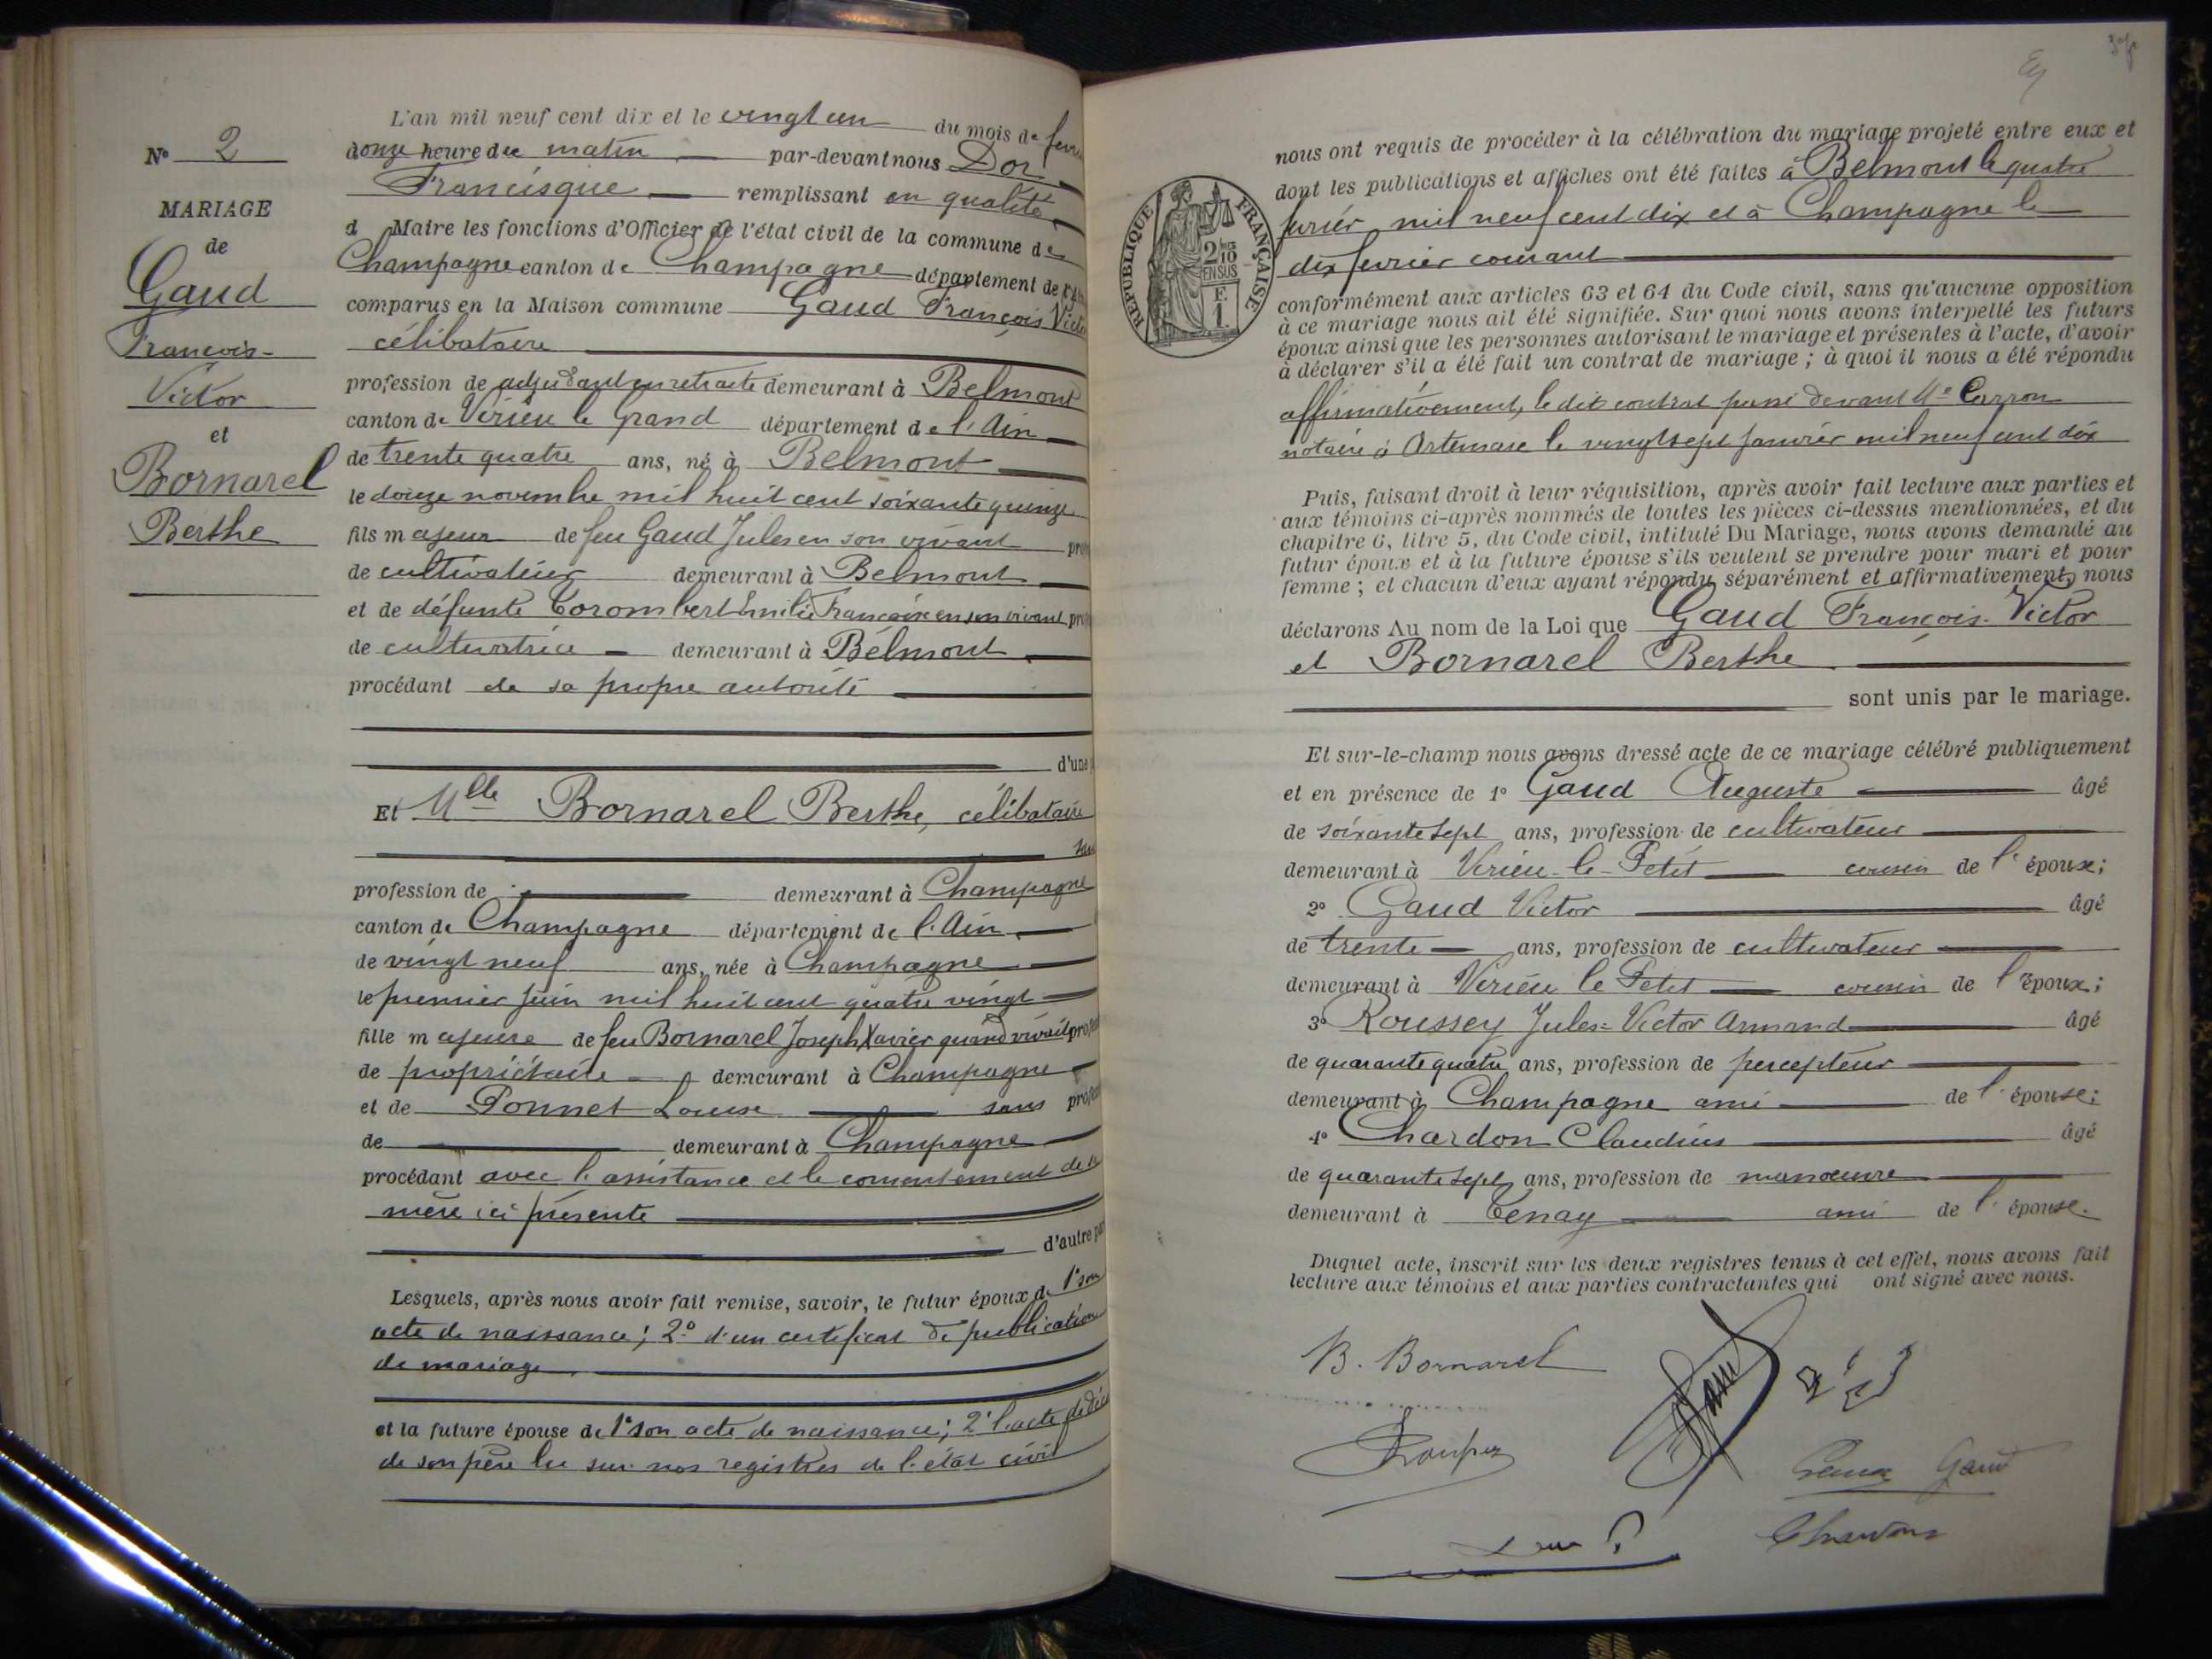 N° 2
MARIAGE
de
Gaud
François-
Victor
et
Bornarel
Berthe
L'an mil neuf cent dix et le vingt un du mois de fevri
heure du matin par-devant nous Dor
Francisque remplissant en qualité
d Maire les fonctions d'Officier de l'état civil de la commune de
Champagne canton de Champagne département de l'Ain
comparus en la Maison commune Gaud François Victo
célibataire
profession de adjudant en retraite demeurant à Belmont
canton de Virieu le Grand département de l'Ain
de trente quatre ans, né à Belmont
le douze novembre mil huit cent soixante quinze
fils majeur de feu Gaud Jules en son vivant prof
de cultivateur demeurant à Belmont
et de défunte Corombert Emilie Françoise en son vivant prof
de cultivatrice demeurant à Belmont
procédant de sa propre autorité
d'une
Et Mlle Bornarel Berthe, célibataire
san
profession de demeurant à Champagne
canton de Champagne département de l'Ain
de vingt neuf ans, née à Champagne
le premier juin mil huit cent quatre vingt
fille majeure de feu Bornarel Joseph Xavier quand vivait profes
de propriétaire demeurant à Champagne
et de Ponnet Louise sans profes
de demeurant à Champagne
procédant avec l'assistance et le consentement de sa
mère ici présente
d'autre par
Lesquels, après nous avoir fait remise, savoir, le futur époux de 1° son
acte de naissance; 2° d'un certificat de publication
de mariage
et la future épouse de 1° son acte de naissance; 2° l'acte de déc
de son père lu sur nos registres de l'état civil
nous ont requis de procéder à la célébration du mariage projeté entre eux et
dont les publications et affiches ont été faites à Belmont le quatre
fevrier mil neuf cent dix et à Champagne le
dix fevrier courant
RÉPUBLIQUE FRANÇAISE
2/10
EN SUS
F.
1.
conformément aux articles 63 et 64 du Code civil, sans qu'aucune opposition
à ce mariage nous ait été signifiée. Sur quoi nous avons interpellé les futurs
époux ainsi que les personnes autorisant le mariage et présentes à l'acte, d'avoir
à déclarer s'il a été fait un contrat de mariage ; à quoi il nous a été répondu
affirmativement, le dit contrat passé devant Me Carron
notaire à Artemare le vingt sept janvier mil neuf cent dix
Puis, faisant droit à leur réquisition, après avoir fait lecture aux parties et
aux témoins ci-après nommés de toutes les pièces ci-dessus mentionnées, et du
chapitre 6, titre 5, du Code civil, intitulé Du Mariage, nous avons demandé au
futur époux et à la future épouse s'ils veulent se prendre pour mari et pour
femme ; et chacun d'eux ayant répondu séparément et affirmativement, nous
déclarons Au nom de la Loi que Gaud François-Victor
et Bornarel Berthe
sont unis par le mariage.
Et sur-le-champ nous avons dressé acte de ce mariage célébré publiquement
et en présence de 1° Gaud Auguste âgé
de soixante sept ans, profession de cultivateur
demeurant à Virieu-le-Petit cousin de l'époux;
2° Gaud Victor âgé
de trente ans, profession de cultivateur
demeurant à Virieu le Petit cousin de l'époux;
3° Roussey Jules-Victor Armand âgé
de quarante quatre ans, profession de percepteur
demeurant à Champagne ami de l'épouse;
4° Chardon Claudius âgé
de quarante sept ans, profession de manoeuvre
demeurant à Tenay ami de l'épouse.
Duquel acte, inscrit sur les deux registres tenus à cet effet, nous avons fait
lecture aux témoins et aux parties contractantes qui ont signé avec nous.
B. Bornarel
Gaud
Gaud
Chardon